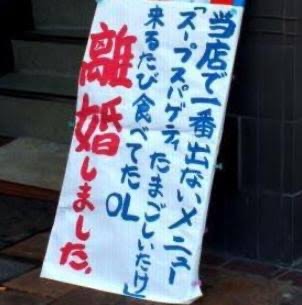 当店で一番出ないメニュー
「スープスパゲティたまごしいたけ」
来るたび食べてたOL
離婚しました。